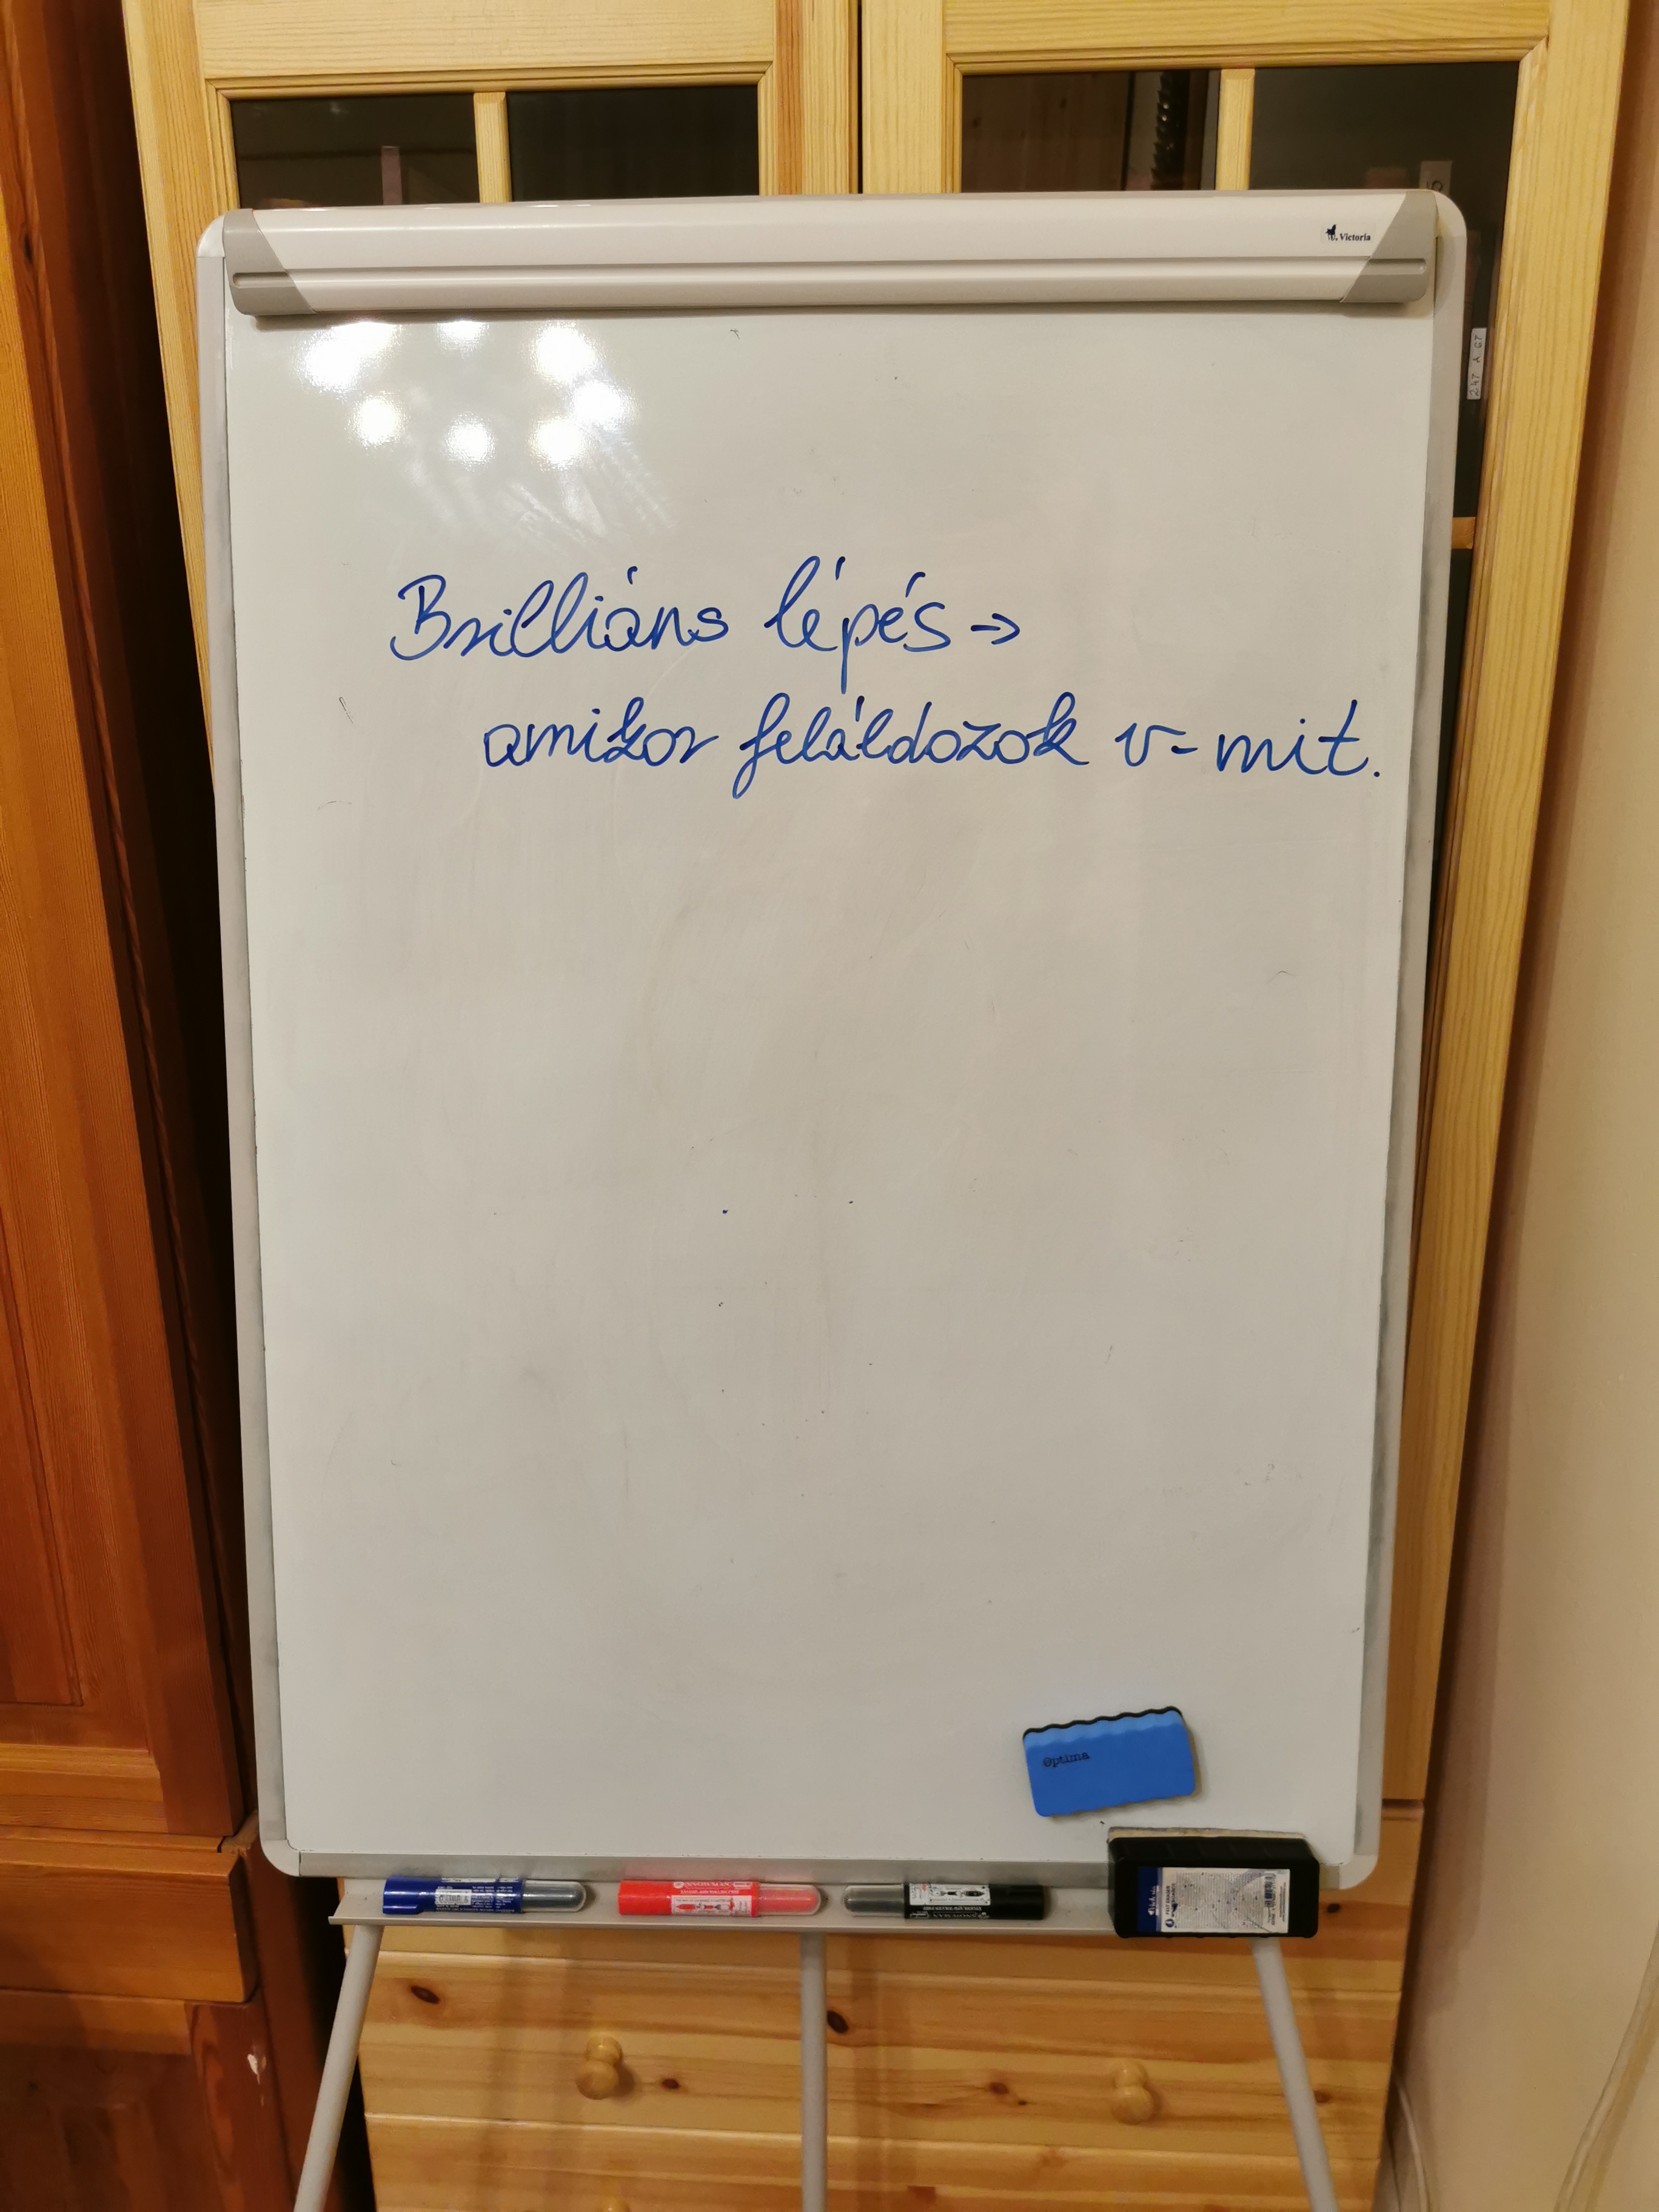 Victoria
Brilliáns lépés →
amikor feláldozok v-mit.
Optima